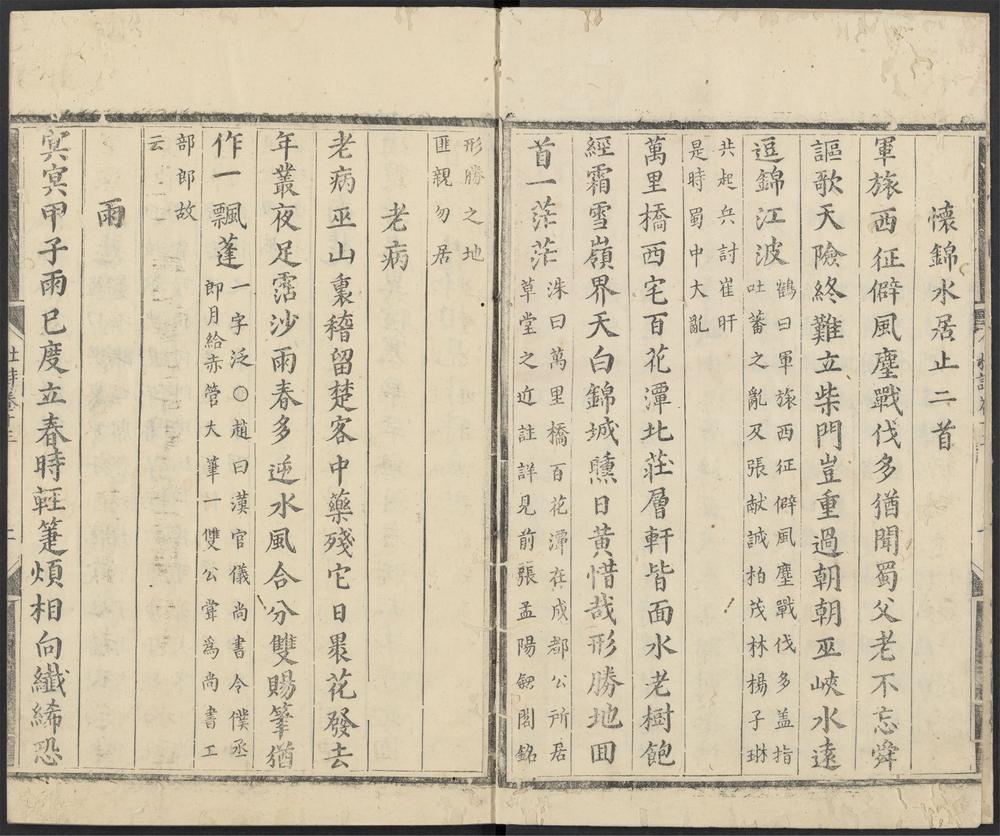 懷錦水居止二首
軍旅西征僻風塵戰伐多猶聞蜀父老不忘舜
謳歌天險終難立柴門豈重過朝朝巫峽水遠
逗錦江波鶴曰軍旅西征僻風塵戰伐多盖指
吐蕃之亂及張献誠柏茂林楊子琳
共起兵討崔旰
是時蜀中大亂
萬里橋西宅百花潭北莊層軒皆面水老樹飽
經霜雪嶺界天白錦城曛日黃惜哉形勝地囬
首一茫茫洙曰萬里橋百花潭在成都公所居
草堂之近註詳見前張孟陽劔閣銘
形勝之地
匪親勿居
老病
老病巫山裏稽留楚客中藥殘它日裹花發去
年叢夜足霑沙雨春多逆水風合分雙賜筆猶
作一飄蓬一字泛○趙曰漢官儀尚書令僕丞
郎月給赤管大筆一雙公甞爲尚書工
部郎故
云
雨
冥冥甲子雨已度立春時輕箑煩相向纖絺恐
杜詩卷十三
二